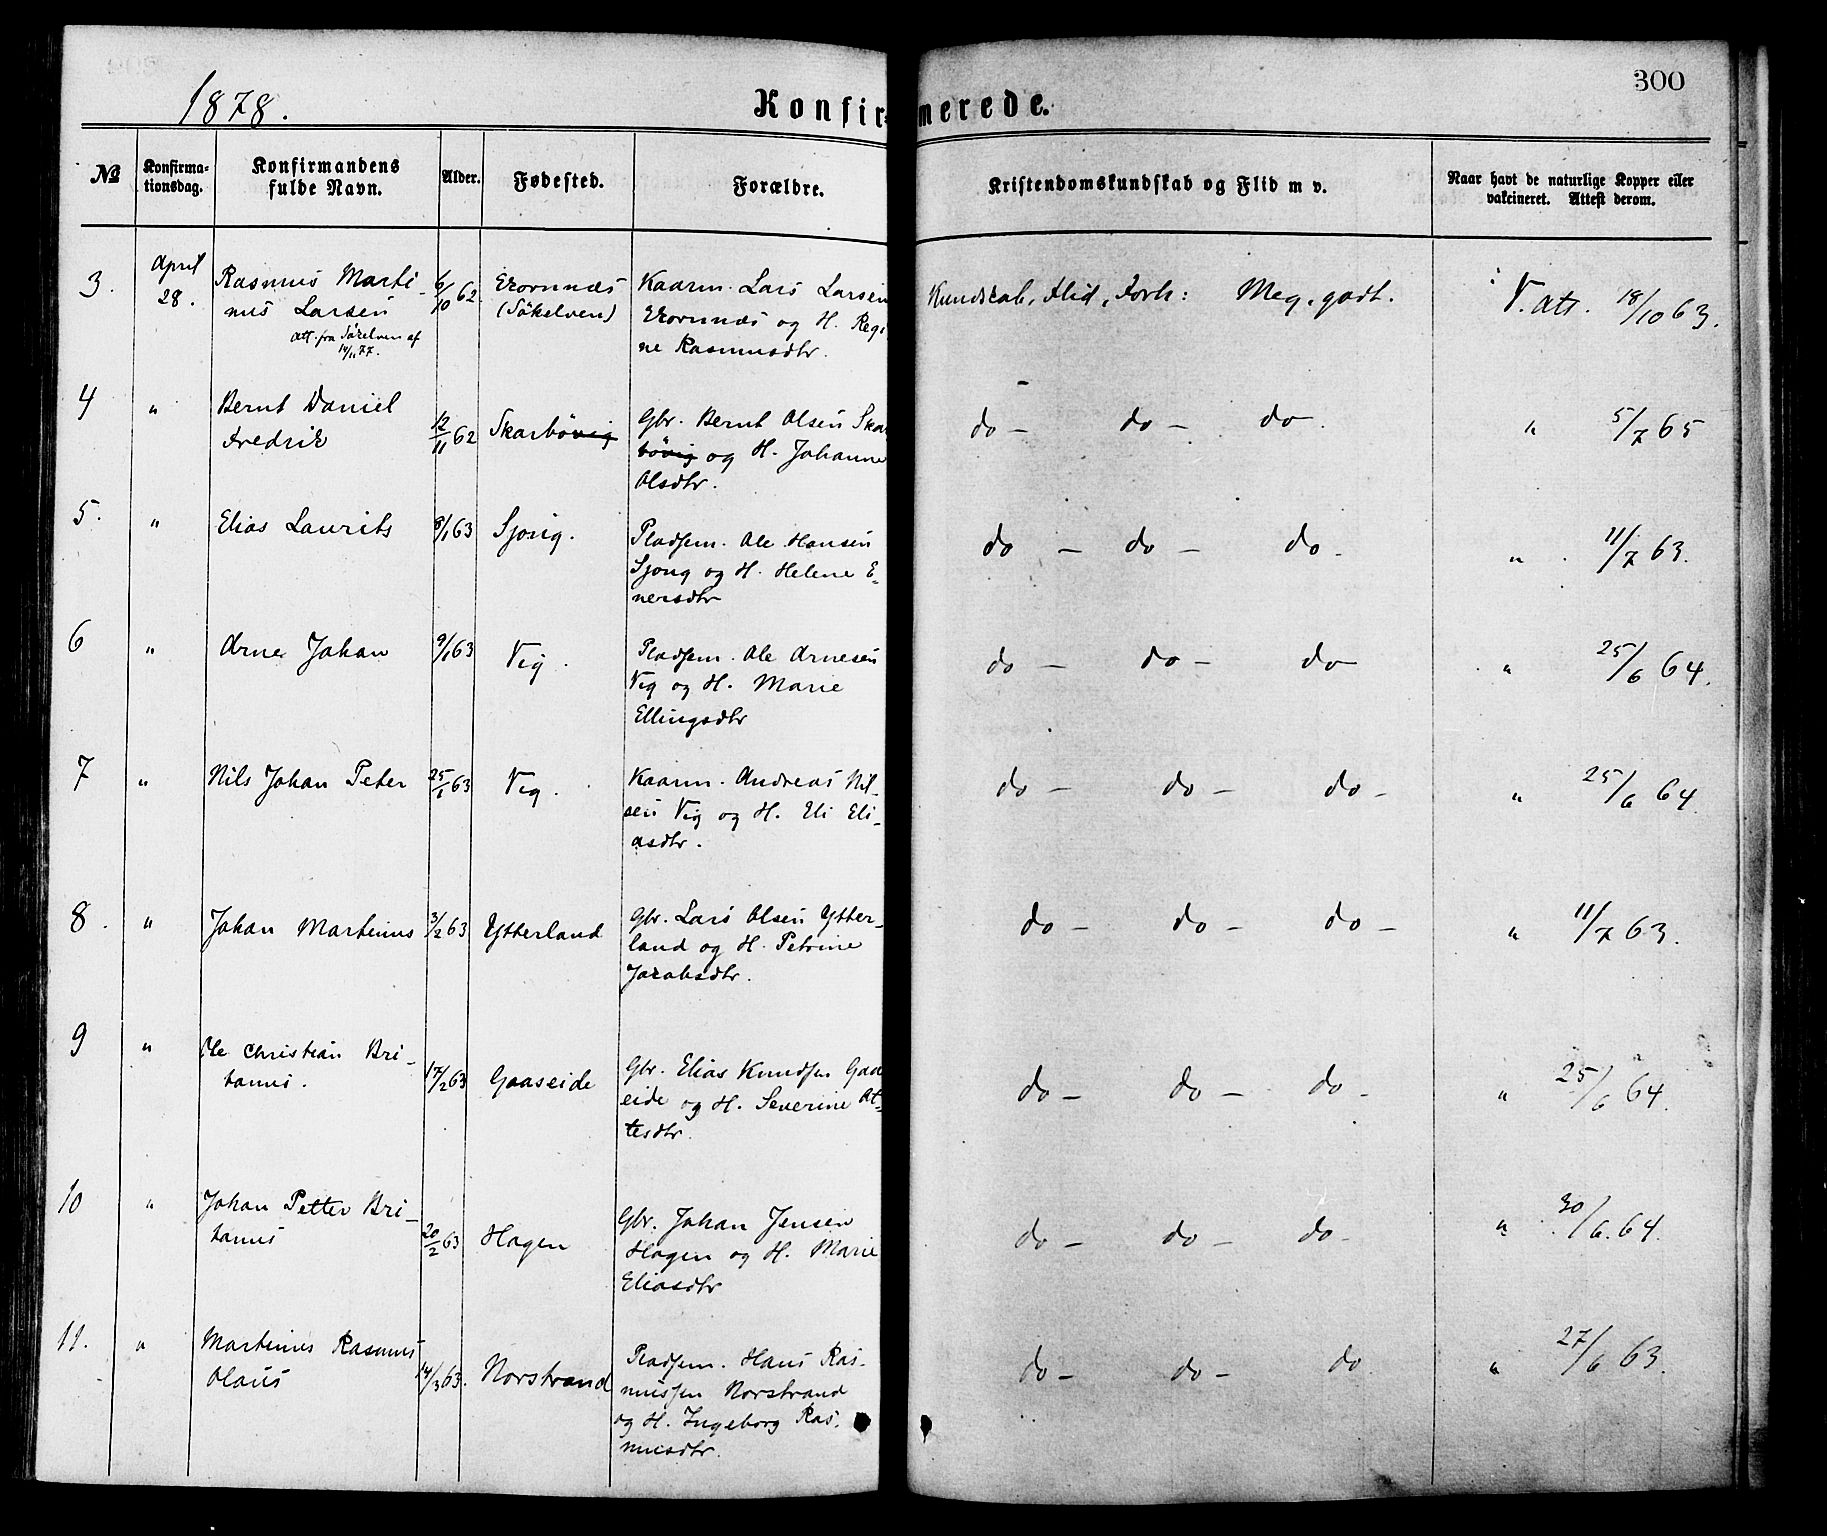 1878.
Konfirmerede.
300
No
Konfirma-
tionsdag.
Konfirmandens
fulde Navn.
Alder.
Fødested.
Forældre.
Kristendomskundskab og Flid m v.
Naar havt de naturlige Kopper eller
vakcineret. Attest derom.
3. April 28. Rasmus Marti-
nus Larsen
att. fra Søkelven af
14/11 77.
6/10 62.
(Søkelven)
Kaarm. Lars Larsen
og H. Regi-
ne Rasmusdtr.
Kundskab, Flid, Forh: Meg. godt.
V. att. 18/10 63.
4 " Bernt Daniel
Fredrik
12/11 62
Skarbøvig
Gbr. Bernt Olsen Skar
bøvig og H. Johanne
Olsdtr.
do - do - do -
" 5/7 65
5. " Elias Laurits
8/1 63
Sjong.
Pladsem. Ole Hansen
Sjong og H. Helene E-
nersdtr
do - do - do -
" 11/7 63.
6 " Arne Johan
9/1 63
Vig.
Pladsem. Ole Arnesen
Vig og H. Marie
Ellingsdtr
do - do - do
" 25/6 64.
7 " Nils Johan Peter
25/1 63
Vig.
Kaarm. Andreas Nil-
sen Vig og H. Eli Eli-
asdtr.
do - do - do -
" 25/6 64.
8. " Johan Martinus
3/2 63
Ytterland
Gbr. Lars Olsen Ytter-
land og H. Petrine
Jacobsdtr.
do - do - do -
" 11/7 63.
9 " Ole Christian Bri-
tanus.
17/2 63
Gaaseide
Gbr. Elias Knudsen Gaas
eide og H. Severine Ot-
tesdtr.
do - do - do -
" 25/6 64.
10 " Johan Petter Bri-
tanus
20/2 63
Hagen
Gbr. Johan Jensen
Hagen og H. Marie
Eliasdtr
do - do - do -
" 30/6. 64.
11. " Martinus Rasmus
Olaus
14/3 63.
Norstrand
Pladsem. Hans Ras-
mussen Norstrand
og H. Ingeborg Ras-
musdtr.
do - do - do
" 27/6 63.